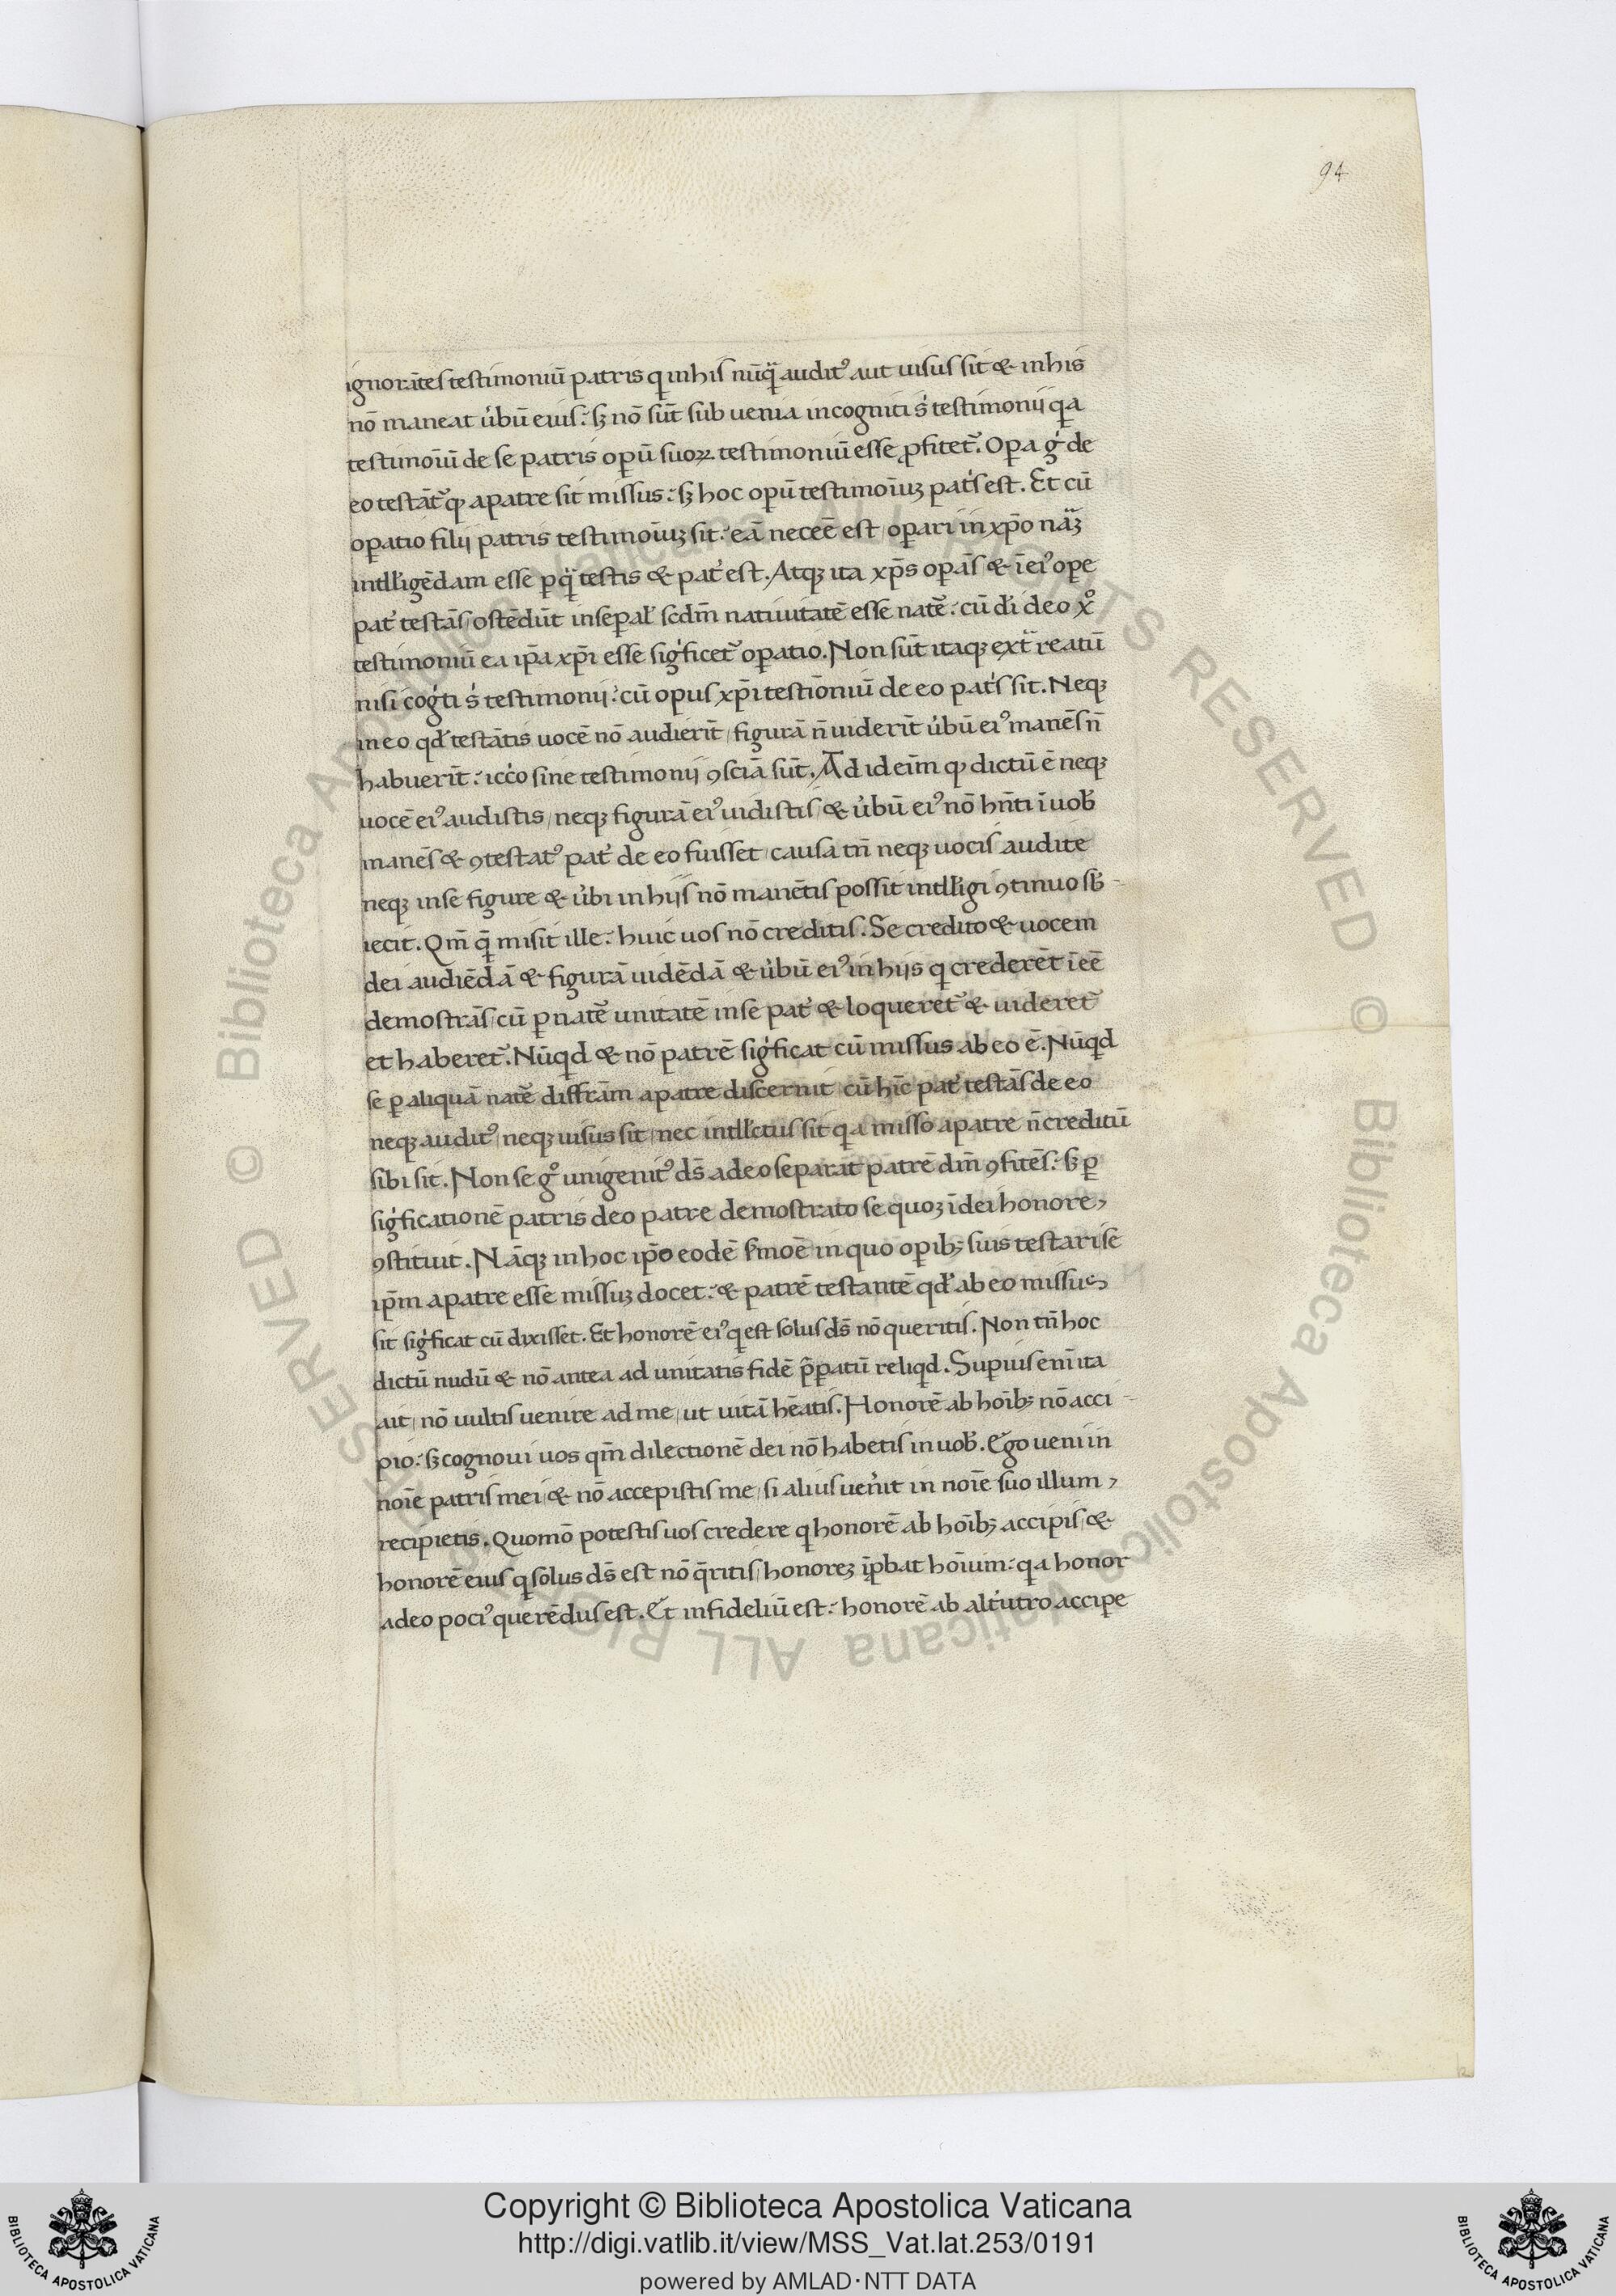 94
ignorātes testimoniū patris q inhis nūq̃ audit᷒ aut uisus sit & inhis
nō maneat u̓bū eius: sꝫ nō sūt sub uenia incogniti s̓ testimonii qa
testimoīu de se patris opū suoꝝ testimoniū esse ꝓfitet᷑. Opa g̓ de
eo testāt᷑ ꝙ apatre sit missus: sꝫ hoc opū testimoīuꝫ pat̓s est. Et cū
oꝑatio filii patris testimoīuꝫ sit: eā neceē est oꝑari in xp̄o nāꝫ
intll̓igēdam esse ꝑ q̃ testis & pat̓ est. Atqꝫ ita xp̄s oꝑās & ī ei᷒ oꝑe
pat̓ testās ostēdūt insepal̓ scdm̄ natiuitatē esse nat᷑ē: cū dl̓i deo xº
testimoniū ea ip̄a xp̄i esse sig̓ficet᷑ oꝑatio. Non sūt itaqꝫ ext᷑ reatū
nisi cog̓ti s̓ testimonii: cū opus xp̄i testiōniū de eo pat̓s sit. Neqꝫ
ineo qd̓ testātis uocē nō audierīt figurā n̄ uiderīt u̓bū ei᷒ manēs n̄
habuerīt: icc̓o sine testimonij ꝯsciā sūt. Ad id eīm ꝙ dictū ē neqꝫ
uocē ei᷒ audistis neqꝫ figurā ei᷒ uidistis & u̓bū ei᷒ nō hn̄ti ī uob̓
manēs & ꝯtestat᷒ pat̓ de eo fuisset causa tn̄ neqꝫ uocis audite
neqꝫ inse figure & u̓bi in hijs nō manētis possit intll̓igi ꝯtinuo sb̓-
iecit. Qm̄ q̄ misit ille: huic uos nō creditis. Se credito & uocem
dei audiēdā & figurā uidēdā & u̓bū ei᷒ in hijs q crederēt īeē
demostrās cū ꝑ nat᷑ē unitatē inse pat̓ & loqueret᷑ & uideret᷑
et haberet᷑. Nūqd & nō patrē sig̓ficat cū missus ab eo ē. Nūqd
se ꝑ aliquā nat᷑ē diffrām apatre discernit cū hīc pat̓ testās de eo
neqꝫ audit᷒ neqꝫ uisus sit nec intll̓ctus sit qa misso apatre n̄ creditū
sibi sit. Non se gº unigenit᷒ ds̄ adeo separat patrē dm̄ ꝯfitēs: sꝫ ꝑ
sig̓ficationē patris deo patre demostrato se quoꝫ ī dei honore
ꝯstituit. Nāqꝫ in hoc ip̄o eodē s̓moē in quo oꝑibꝫ suis testari se
ip̄m apatre esse missuꝫ docet: & patrē testantē qd̓ ab eo missus
sit sig̓ficat cū dixisset. Et honorē ei᷒ q est solus ds̄ nō queritis. Non tn̄ hoc
dictū nudū & nō antea ad unitatis fidē p̄ꝑatū reliqd. Supius enī ita
ait nō uultis uenire ad me ut uitā hēatis. Honorē ab hoībꝫ nō acci-
pio: sꝫ cognoui uos qm̄ dilectionē dei nō habetis in uob̓. Ego ueni in
noīe patris mei & nō accepistis me si alius uen̓it in noīe suo illum
recipietis. Quomō potestis uos credere q honorē ab hoībꝫ accipis &
honorē eius q solus ds̄ est nō q̄ritis honoreꝫ īꝓbat hoīum: qa honor
adeo poci᷒ querēdus est. Et infideliū est: honorē ab alt̓utro accipe
© Biblioteca Apostolica Vaticana ALL RIGHTS RESERVED © Biblioteca Apostolica Vaticana ALL RIGHTS RESERVED
Copyright © Biblioteca Apostolica Vaticana
http://digi.vatlib.it/view/MSS_Vat.lat.253/0191
powered by AMLAD·NTT DATA
BIBLIOTECA APOSTOLICA VATICANA
BIBLIOTECA APOSTOLICA VATICANA